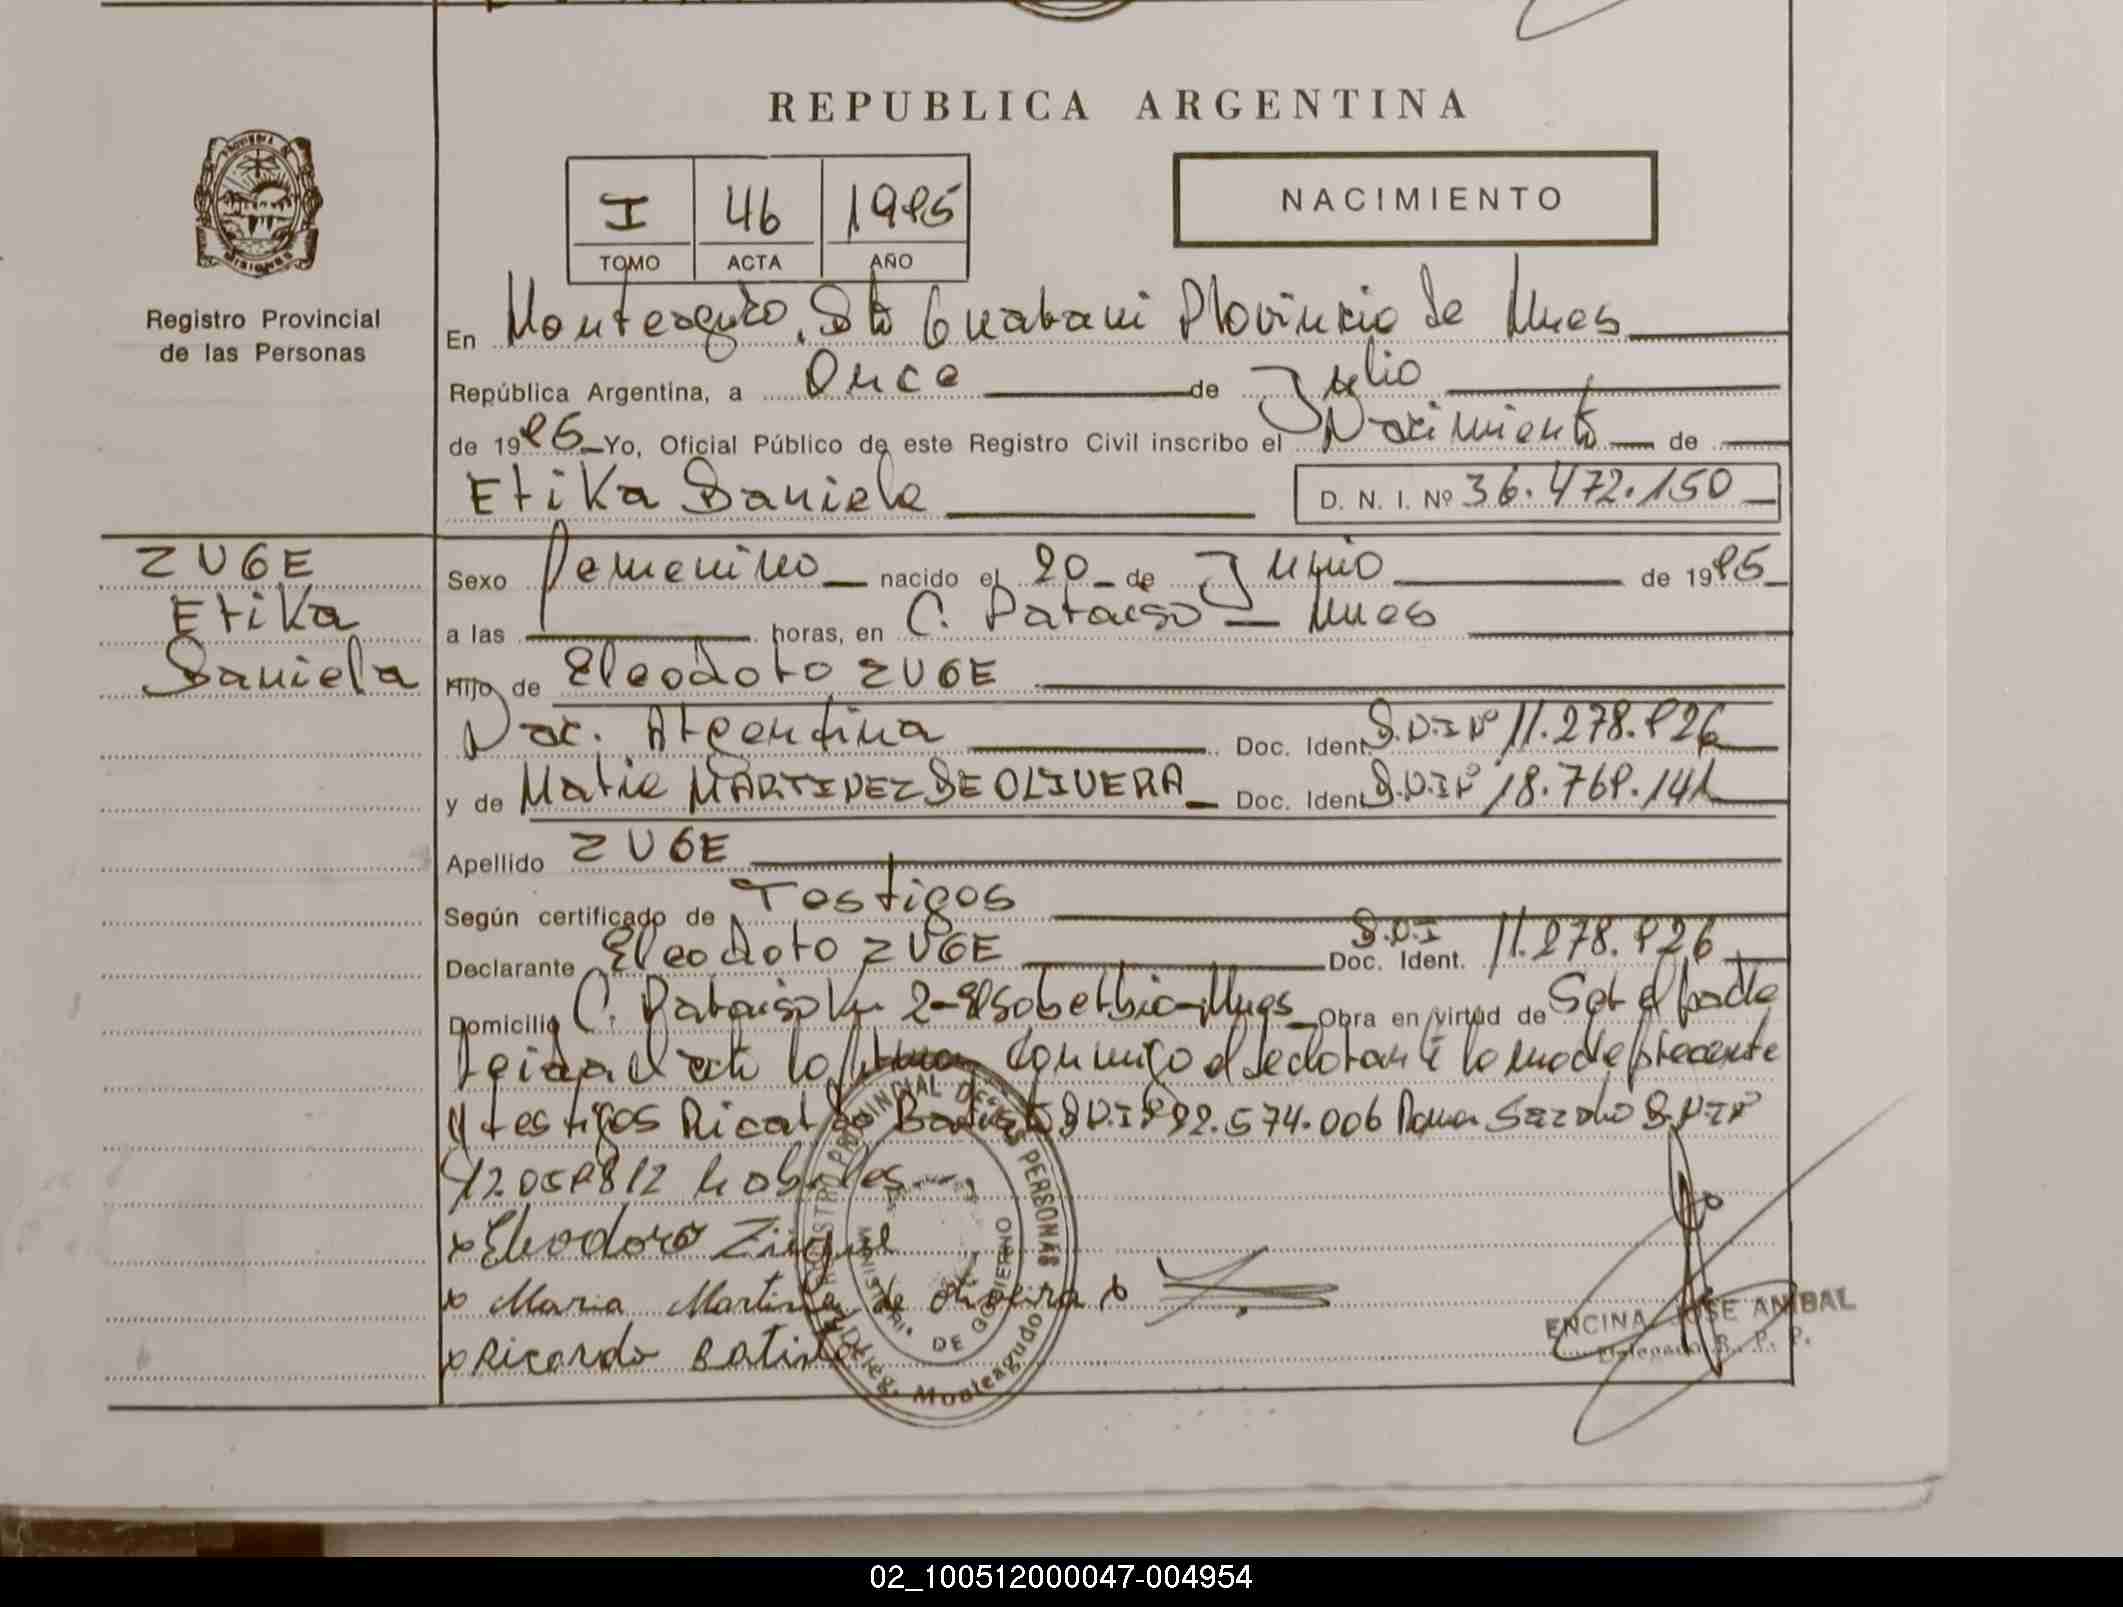 REPUBLICA ARGENTINA
PROVINCIA DE MISIONES
Registro Provincial
de las Personas
I 46 1985
TOMO ACTA AÑO
NACIMIENTO
En Monteagudo, Dto Guarani Provincia de Mnes
República Argentina, a Once de Julio
de 1985 Yo, Oficial Público de este Registro Civil inscribo el Nacimiento de
Erika Daniela
D. N. I. Nº 36.472.150
ZUGE
Erika
Daniela
Sexo Femenino nacido el 20 de Junio de 1985
a las horas, en C. Paraiso - Mnes
Hijo de Eleodoro ZUGE
Nac. Argentina Doc. Ident. D.N.I Nº 11.278.826
y de Maria MARTINEZ DE OLIVERA Doc. Ident. D.N.I Nº 18.768.141
Apellido ZUGE
Según certificado de Testigos
Declarante Eleodoro ZUGE Doc. Ident. D.N.I 11.278.826
Domicilio C. Paraiso Km 2 - El Soberbio - Mnes Obra en virtud de Ser el padre
Leida el acta la firma conmigo el declarante la madre presente
y testigos Ricardo Batista D.N.I Nº 22.574.006 D.N.I Nº
habiles
x Eleodoro
x Maria Martinez de Oliveira x
x Ricardo Batista
REGISTRO PROVINCIAL DE LAS PERSONAS
MINISTERIO DE GOBIERNO
Deleg. Monteagudo
ENCINA JOSE ANIBAL
Delegado R. P. P.
02_100512000047-004954